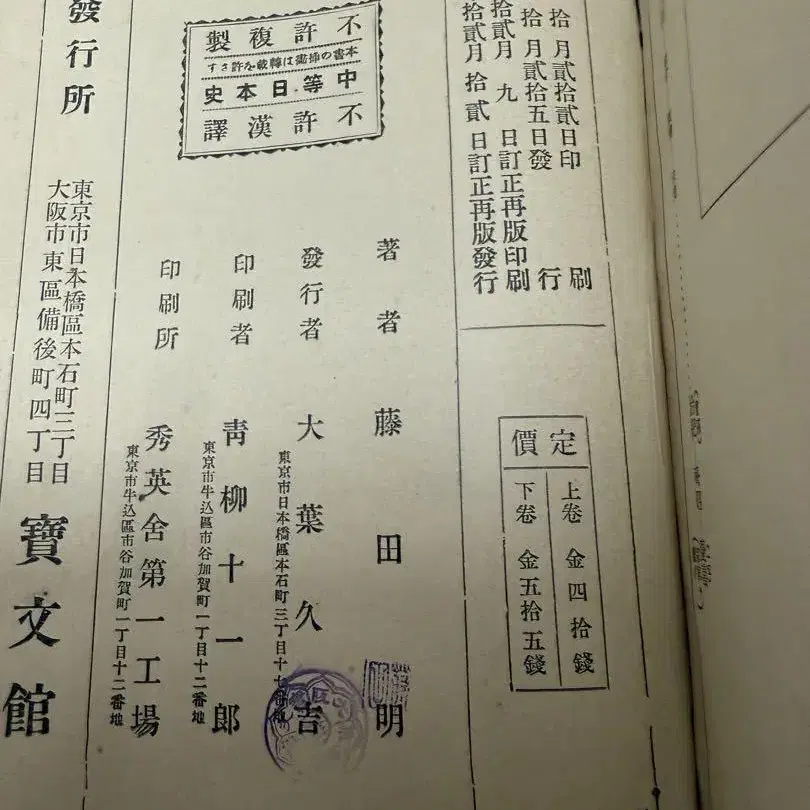 拾月貳拾貳日印刷
拾月貳拾五日發行
拾貳月九日訂正再版印刷
拾貳月拾貳日訂正再版發行
定價
上卷 金四拾錢
下卷 金五拾五錢
不許複製
本書の挿畵は轉載を許さず
中等日本史
不許漢譯
著者 藤田明
發行者 大葉久吉
東京市日本橋區本石町三丁目十七番地
印刷者 靑柳十一郎
東京市牛込區市谷加賀町一丁目十二番地
印刷所 秀英舍第一工場
東京市牛込區市谷加賀町一丁目十二番地
發行所
東京市日本橋區本石町三丁目
大阪市東區備後町四丁目
寶文館